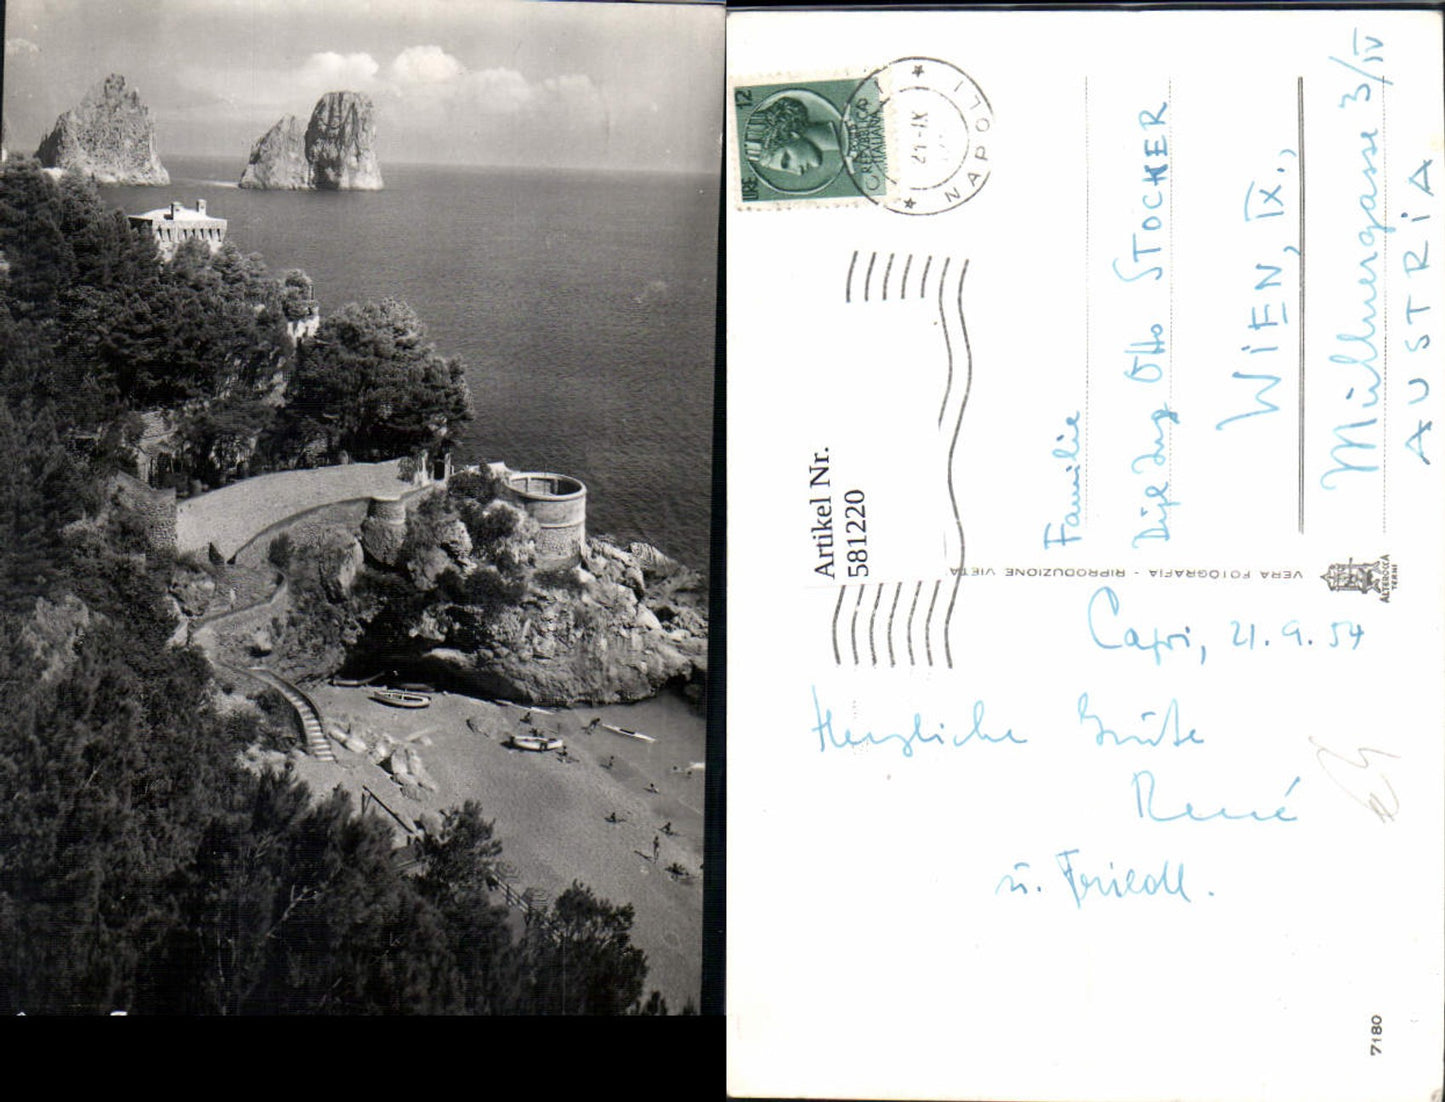 12
LIRE
REPVBBLICA
ITALIANA
NAPOLI
21-IX
Artikel Nr.
581220
Familie
Dipl Ing Otto STOCKER
WIEN, IX.,
Müllnergasse 3/IV
AUSTRIA
VERA FOTOGRAFIA - RIPRODUZIONE VIETA
ALTEROCCA
TERNI
Capri, 21.9.54
Herzliche Grüße
René
u. Friedl.
7180